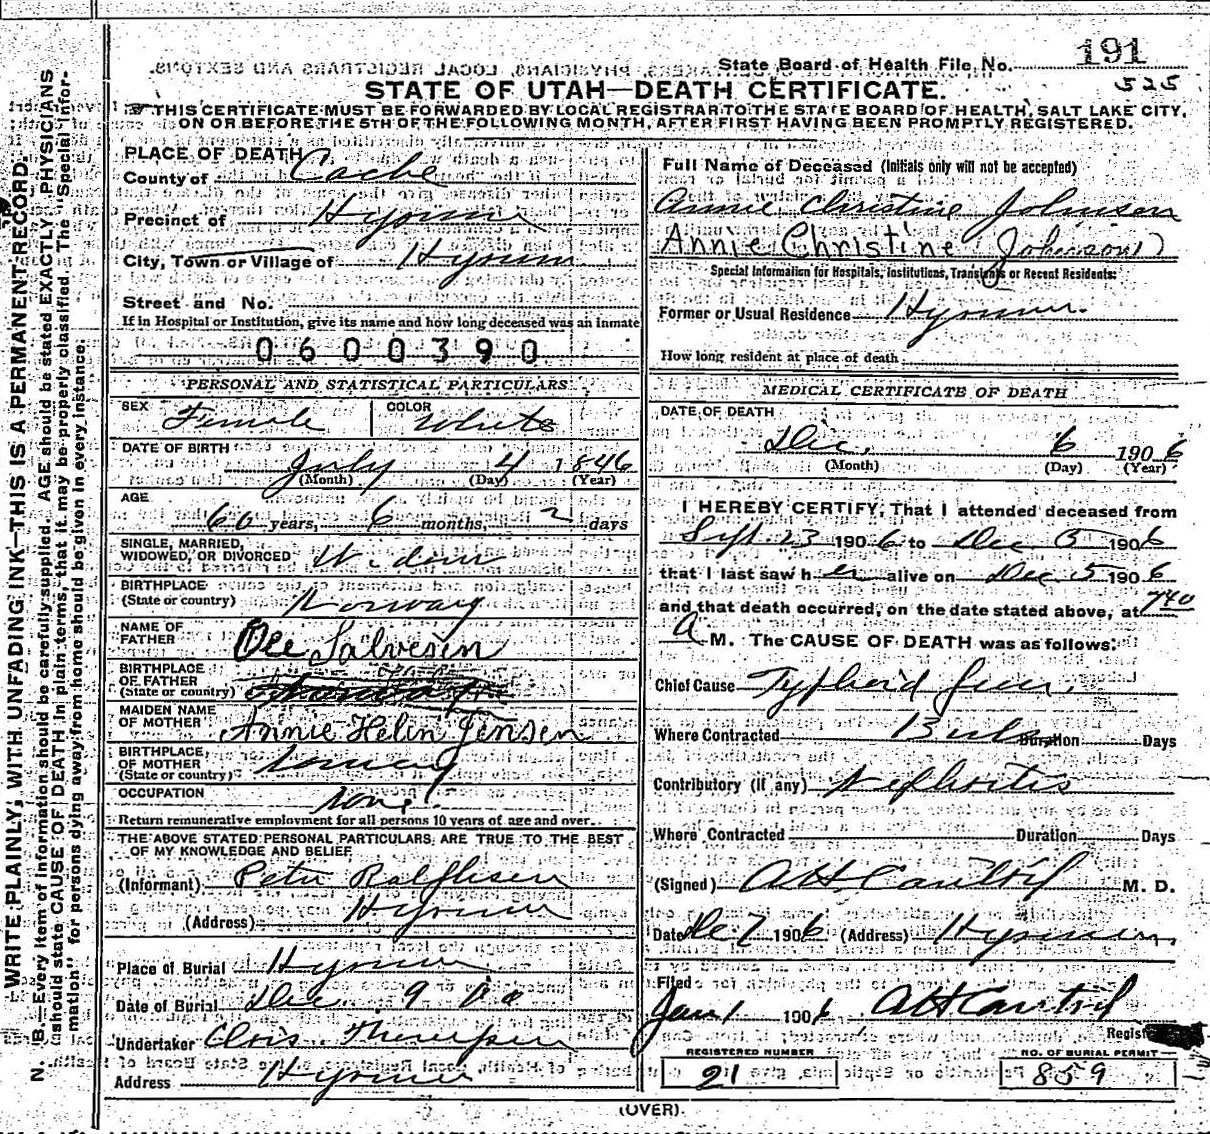 State Board of Health File No. 191
525
STATE OF UTAH—DEATH CERTIFICATE.
THIS CERTIFICATE MUST BE FORWARDED BY LOCAL REGISTRAR TO THE STATE BOARD OF HEALTH, SALT LAKE CITY,
ON OR BEFORE THE 5TH OF THE FOLLOWING MONTH, AFTER FIRST HAVING BEEN PROMPTLY REGISTERED.
WRITE PLAINLY, WITH UNFADING INK—THIS IS A PERMANENT RECORD.
N. B.—Every item of information should be carefully supplied. AGE should be stated EXACTLY. PHYSICIANS
should state CAUSE OF DEATH in plain terms, that it may be properly classified. The "Special Infor-
mation" for persons dying away from home should be given in every instance.
PLACE OF DEATH
County of Cache
Precinct of Hyrum
City, Town or Village of Hyrum
Street and No.
If in Hospital or Institution, give its name and how long deceased was an inmate
0600390
PERSONAL AND STATISTICAL PARTICULARS
SEX Female COLOR White
DATE OF BIRTH July 4 1846
(Month) (Day) (Year)
AGE 60 years, 6 months, 2 days
SINGLE, MARRIED,
WIDOWED, OR DIVORCED Widow
BIRTHPLACE
(State or country) Norway
NAME OF
FATHER Ole Salvesen
BIRTHPLACE
OF FATHER
(State or country)
MAIDEN NAME
OF MOTHER Annie Helin Jensen
BIRTHPLACE
OF MOTHER
(State or country) Norway
OCCUPATION None.
Return remunerative employment for all persons 10 years of age and over.
THE ABOVE STATED PERSONAL PARTICULARS ARE TRUE TO THE BEST
OF MY KNOWLEDGE AND BELIEF
(Informant) Peter
(Address) Hyrum
Place of Burial Hyrum
Date of Burial Dec. 9
Undertaker
Address Hyrum
Full Name of Deceased (Initials only will not be accepted)
Annie Christine Johnson
Annie Christine (Johnson)
Special Information for Hospitals, Institutions, Transients or Recent Residents:
Former or Usual Residence Hyrum.
How long resident at place of death
MEDICAL CERTIFICATE OF DEATH
DATE OF DEATH
Dec. 6 1906
(Month) (Day) (Year)
I HEREBY CERTIFY, That I attended deceased from
Sept. 23 1906 to Dec 5 1906
that I last saw her alive on Dec 5 1906
and that death occurred, on the date stated above, at 740
A M. The CAUSE OF DEATH was as follows:
Chief Cause Typhoid fever.
Where Contracted Duration Days
Contributory (if any) Nephritis
Where Contracted Duration Days
(Signed) M. D.
Date Dec 7 1906 (Address) Hyrum
Filed
Jan 1 190
Regist
REGISTERED NUMBER
21
NO. OF BURIAL PERMIT
859
(OVER).